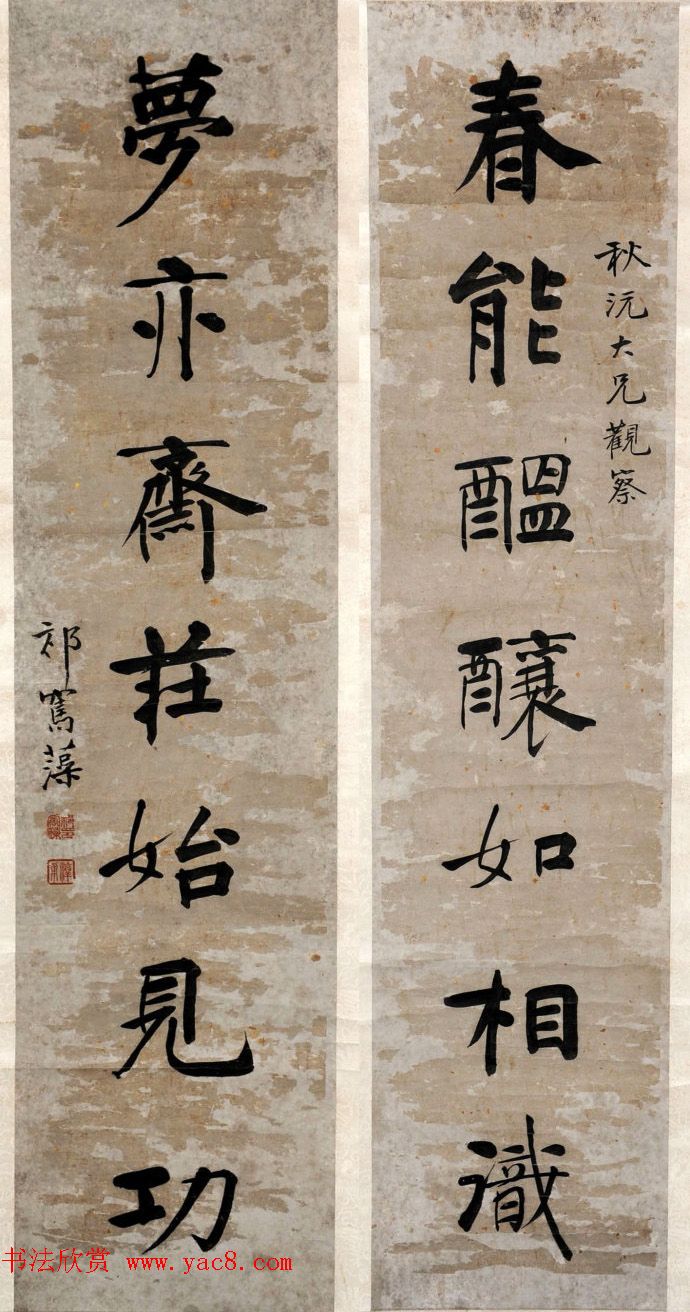 秋沅大兄觀察
春能醞釀如相識
夢亦齋莊始見功
祁寯藻
书法欣赏 www.yac8.com